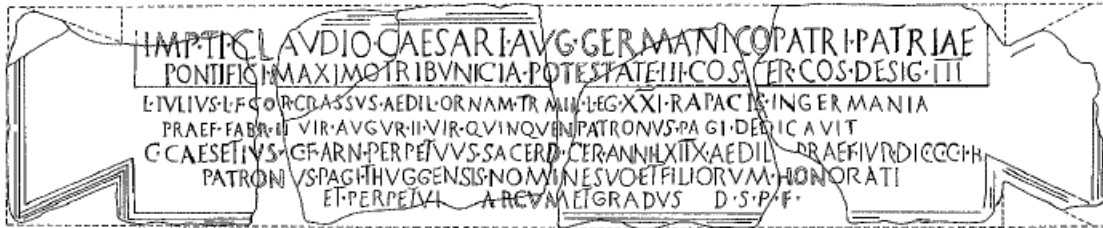 IMP·TI·CLAVDIO·CAESARI·AVG·GERMANICO PATRI·PATRIAE
PONTIFICI·MAXIMO TRIBVNICIA·POTESTATE·III·COS· COS·DESIG·III
L·IVLIVS·L·F·COR·CRASSVS·AEDIL·ORNAM·TR MIL·LEG·XXI·RAPACIS·IN GERMANIA
PRAEF·FABR·II VIR·AVGVR·II·VIR·QVINQVEN PATRONVS·PAGI·DEDICAVIT
C CAESETIVS·C F·ARN·PERPETVVS·SACERD·CER·ANNI LXIIX·AEDIL PRAEF·IVR·DIC
PATRONVS·PAGI·THVGGENSIS·NOMINE SVO ET FILIORVM·HONORATI
ET·PERPETVI ARCVM ET GRADVS D·S·P·F·